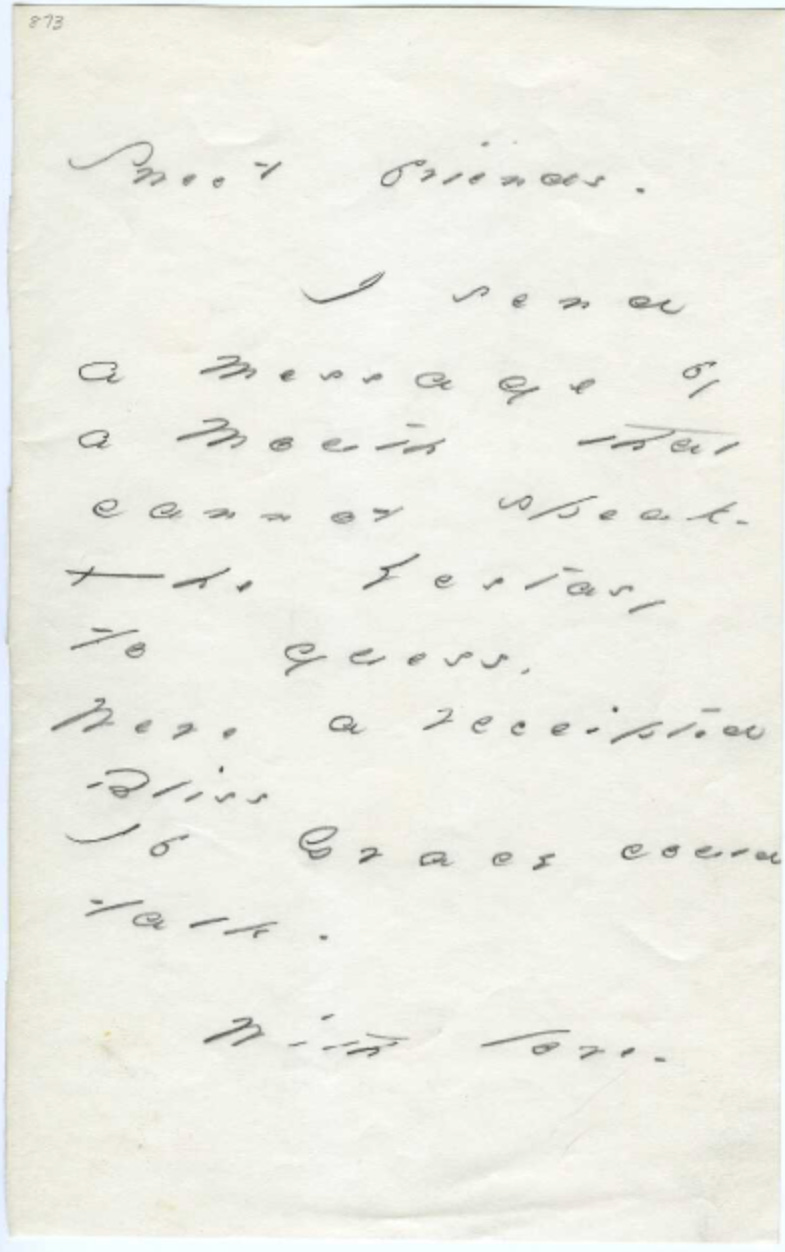 873
Sweet friends.
I send
a message by
a Mouth that
cannot speak -
The Ecstasy
to guess,
Were a receipted
Bliss
If Grace could
talk.
With love -